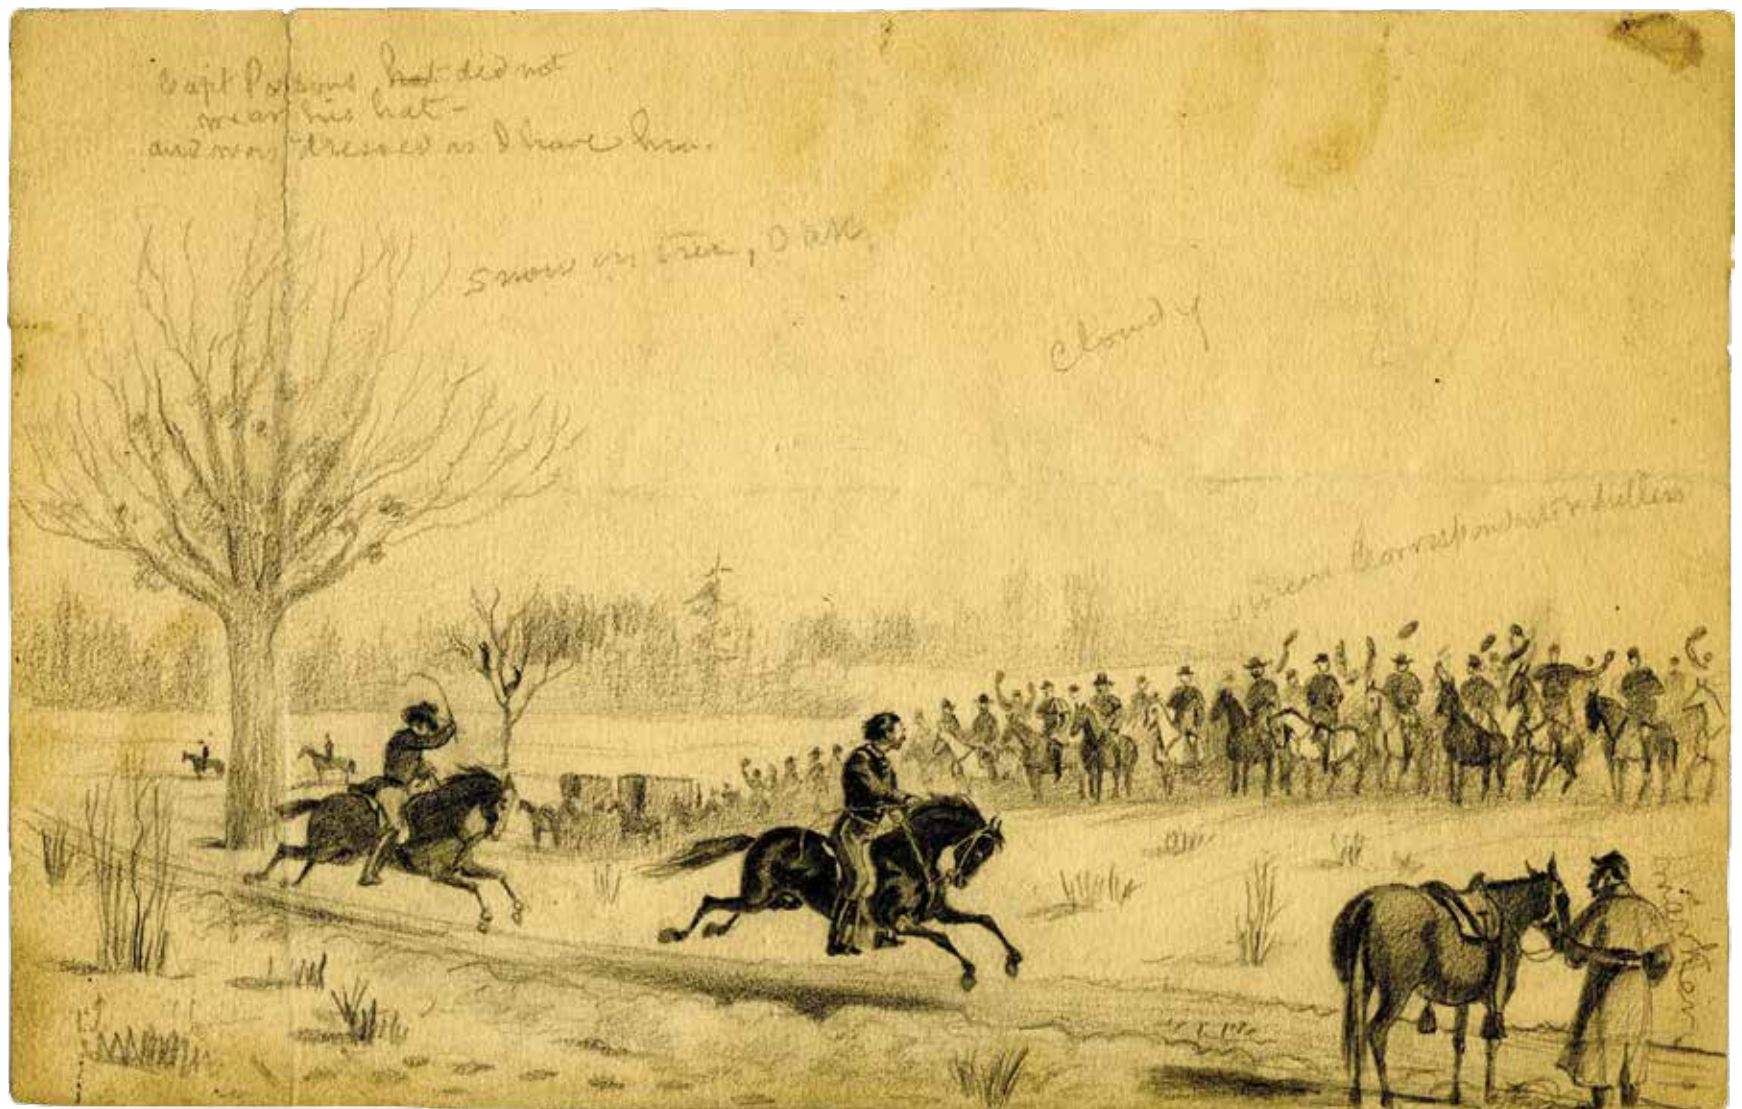 Capt Parsons hat did not
wear his hat -
and was dressed as I have him.
snow on tree, Oak,
Cloudy
Correspondent